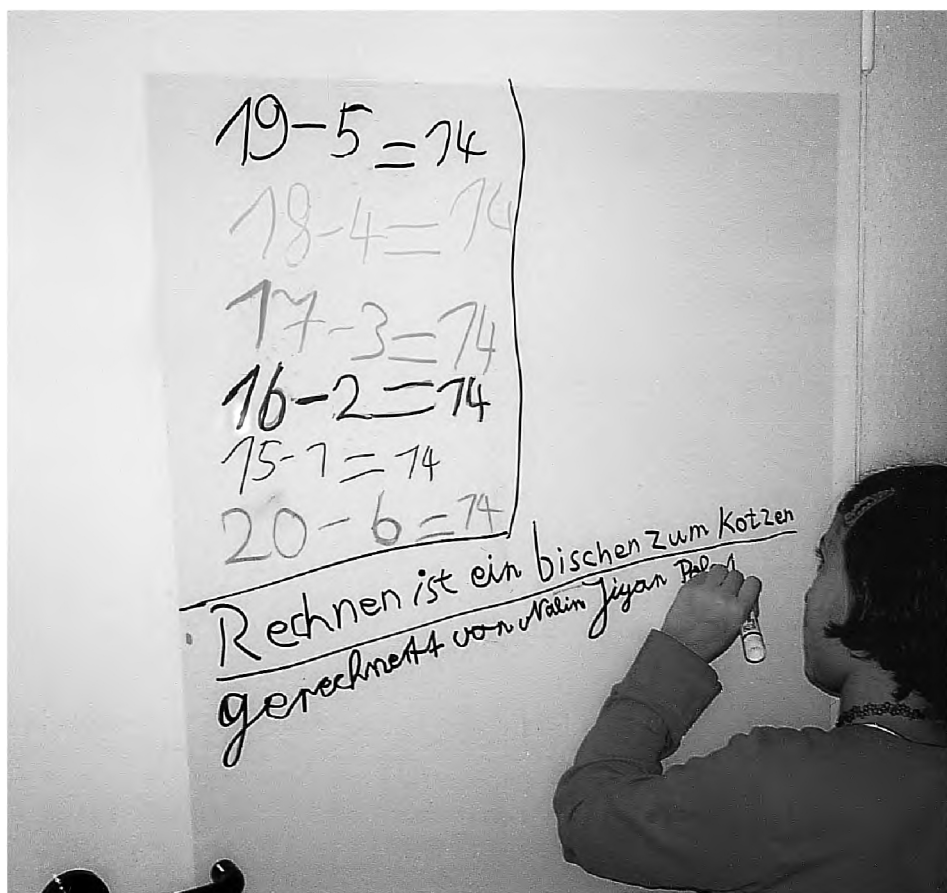 19-5=14
18-4=14
17-3=14
16-2=14
15-1=14
20-6=14
Rechnen ist ein bischen zum Kotzen
gerechnett von Nalin Jiyan